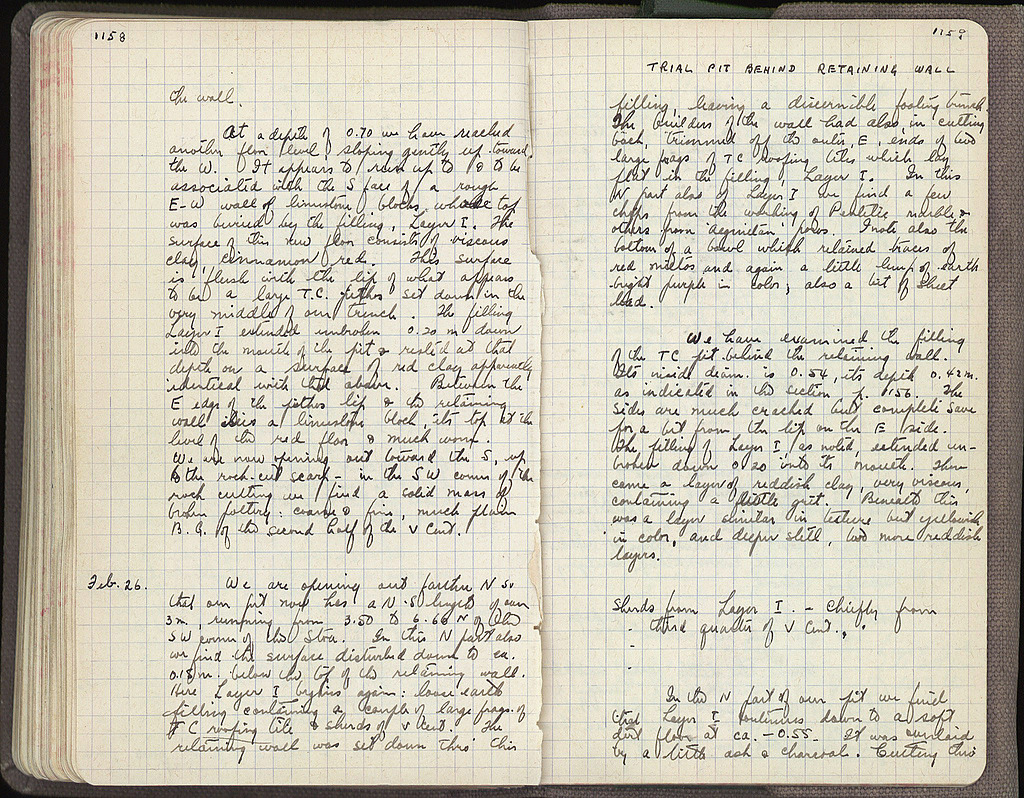 1158
the wall.
At a depth of 0.70 we have reached
another floor level, sloping gently up toward
the W. It appears to run up to & to be
associated with the S face of a rough
E-W wall of limestone blocks, whose top
was buried by the filling, Layer I. The
surface of this new floor consists of viscous
clay, cinnamon red. This surface
is flush with the lip of what appears
to be a large T.C. pithos set down in the
very middle of our trench. The filling
Layer I extended unbroken 0.20 m down
into the mouth of the pit & rested at that
depth on a surface of red clay apparently
identical with that above. Between the
E edge of the pithos lip & the retaining
wall is a limestone block, its top at the
level of the red floor & much worn.
We are now opening out toward the S, up
to the rock-cut scarp – in the SW corner of the
rock cutting we find a solid mass of
broken pottery: coarse & fine, much plain
B.G. of the second half of the V Cent.
Feb. 26.
We are opening out farther N so
that our pit now has a N-S length of over
3 m, running from 3.50 to 6.66 N of the
SW corner of the Stoa. In this N part also
we find the surface disturbed down to ca.
0.15 m. below the top of the retaining wall.
Here Layer I begins again: loose earth
filling containing a couple of large frags. of
T C roofing tile & sherds of V Cent. The
retaining wall was set down thro' this
1159
TRIAL PIT BEHIND RETAINING WALL
filling, leaving a discernible footing trench
The builders of the wall had also, in cutting
back, trimmed off the outer, E, ends of two
large frags of TC roofing tiles which lay
flat in the filling, Layer I. In this
N part also of Layer I we find a few
chips from the working of Pentelic marble &
others from 'Aeginetan' poros. I note also the
bottom of a bowl which retained traces of
red miltos and again a little lump of earth
bright purple in color; also a bit of sheet
lead.
We have examined the filling
of the TC pit behind the retaining wall.
Its inside diam. is 0.54, its depth 0.42 m.
as indicated in the section p. 1156. The
sides are much cracked but complete save
for a bit from the lip on the E side.
The filling of Layer I, as noted, extended un-
broken down 0.20 into its mouth. Then
came a layer of reddish clay, very viscous,
containing a little grit. Beneath this
was a layer similar in texture but yellowish
in color, and deeper still, two more reddish
layers.
Sherds from Layer I. – Chiefly from
third quarter of V Cent.
In the N part of our pit we find
that Layer I continues down to a soft
dirt floor at ca. –0.55. It was overlaid
by a little ash & charcoal. Cutting thro'